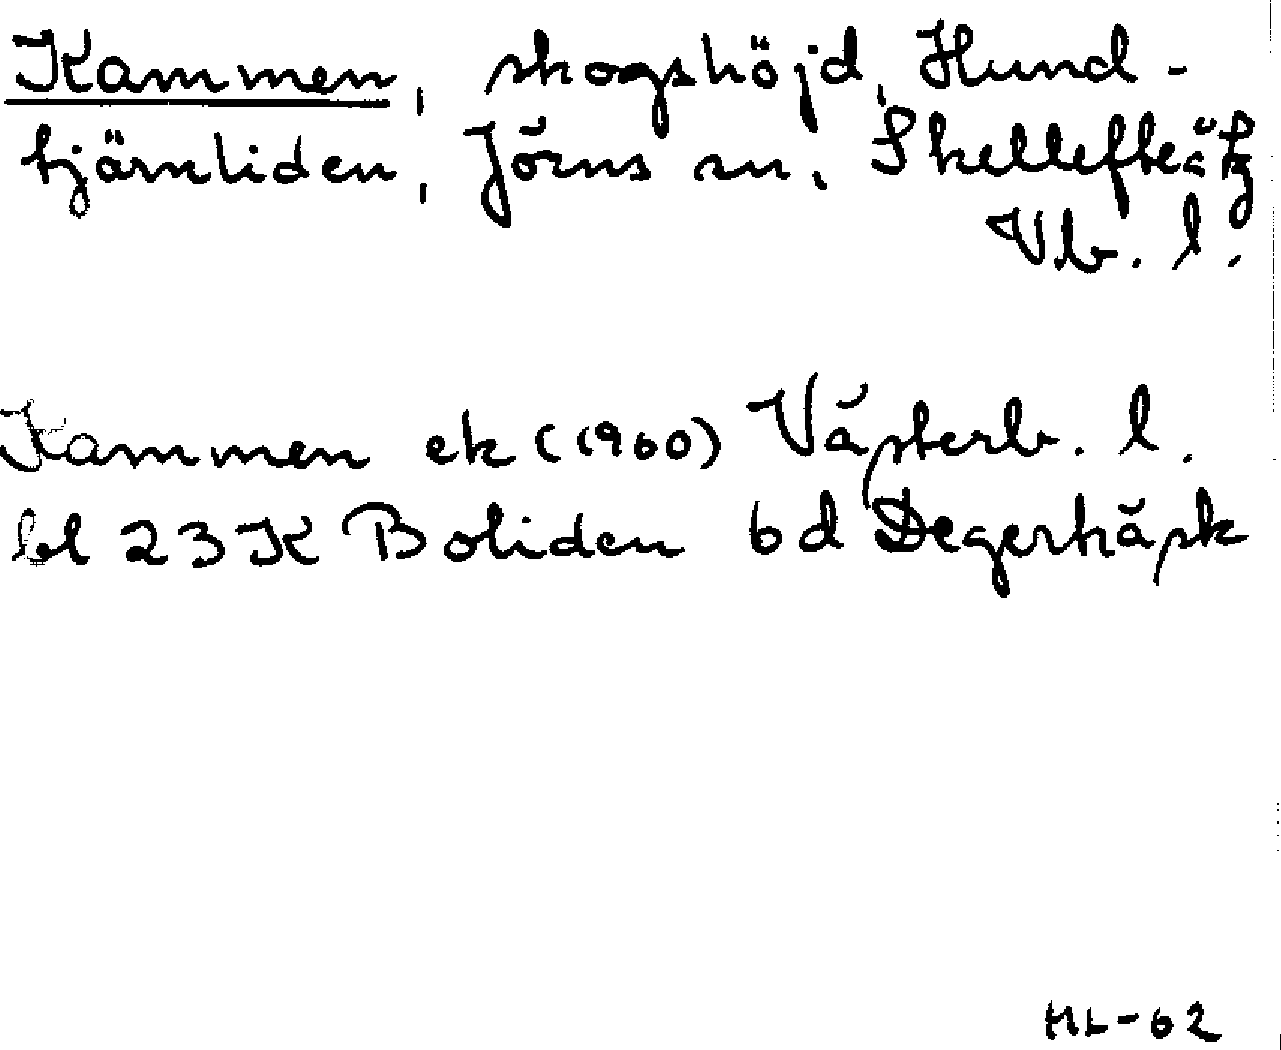 Kammen, skogshöjd, Hund-
tjärnliden, Jörns sn, Skellefteå tg
Vb. l.
Kammen ek (1960) Västerb. l.
bl 23 K Boliden 6d Degerträsk
HL-62